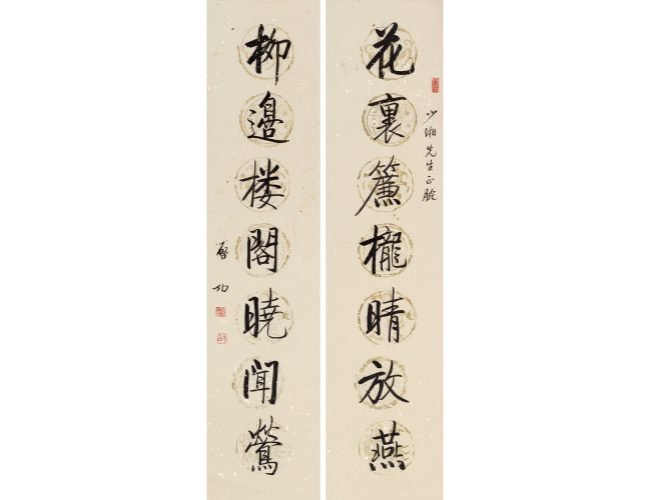 花裏簾櫳晴放燕
少湘先生正腕
柳邊楼閣曉聞鶯
啓功